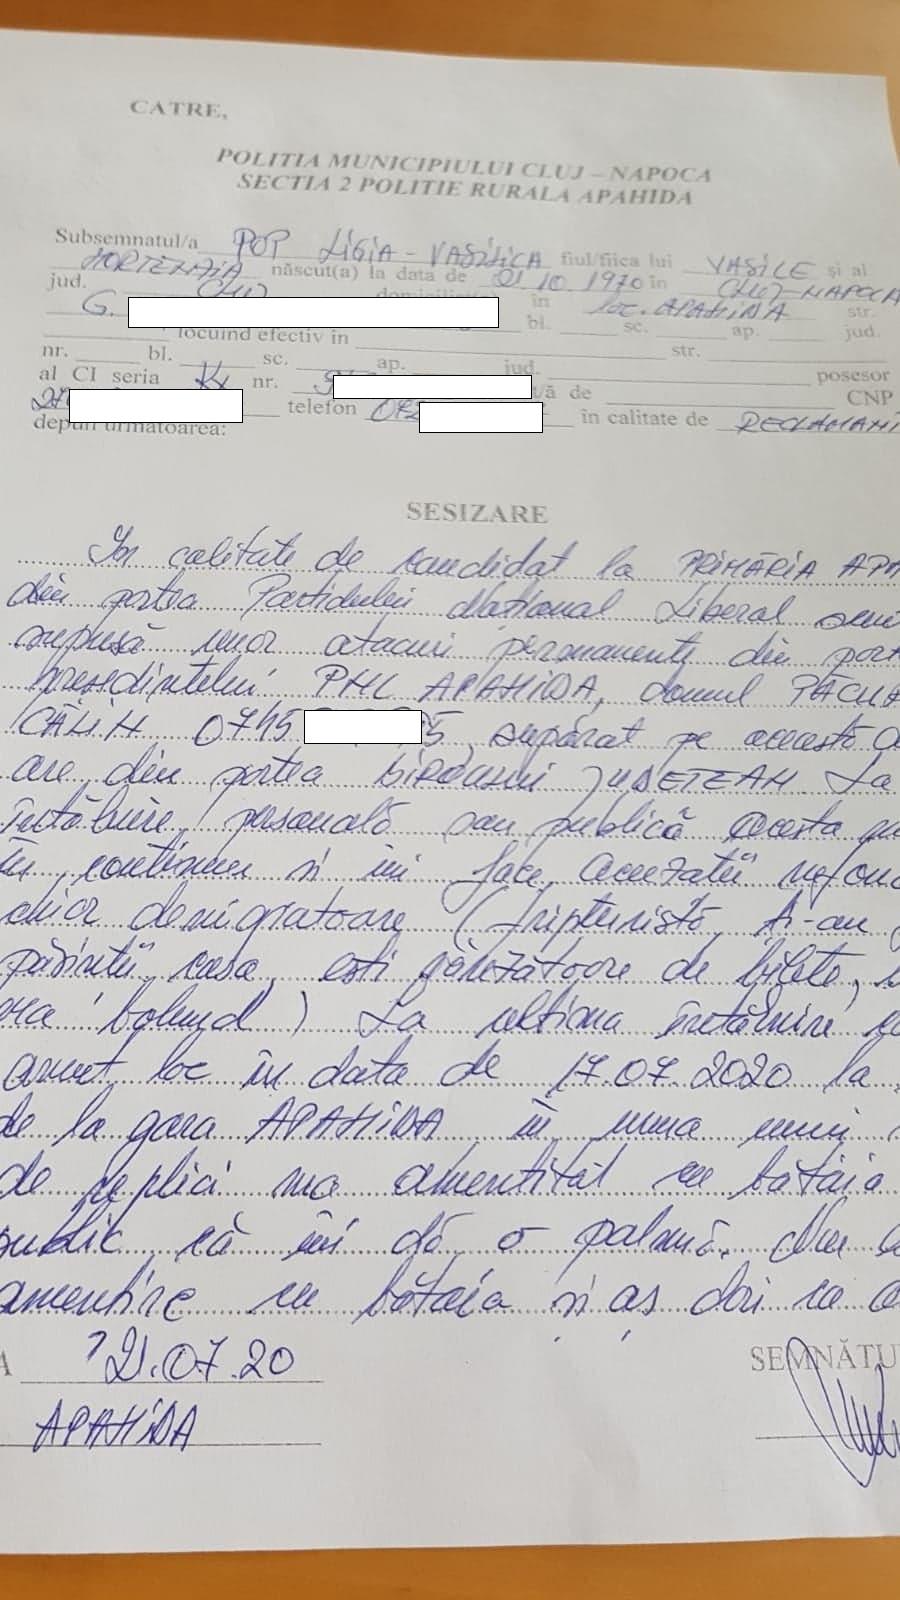 CATRE,
POLITIA MUNICIPIULUI CLUJ – NAPOCA
SECTIA 2 POLITIE RURALA APAHIDA
Subsemnatul/a POP LIGIA - VASILICA fiul/fiica lui VASILE și al
HORTENZIA născut(a) la data de 01.10.1970 în CLUJ-NAPOCA
jud. CLUJ în loc. APAHIDA str.
G. bl. sc. ap. jud.
locuind efectiv în str.
nr. bl. sc. ap. jud. posesor
al CI seria KX nr. /ă de CNP
27 telefon 072 în calitate de RECLAMANT
depun urmatoarea:
SESIZARE
In calitate de candidat la PRIMĂRIA APA
din partea Partidului Național Liberal sunt
supusă unor atacuri permanente din part
președintelui PNL APAHIDA, domnul PĂCU
CĂLIN 0745 5, supărat pe această
are din partea biroului JUDEȚEAN. La
întâlnire personală sau publică acesta
în continuu și îmi face acuzații
chiar denigratoare (fripturistă, ți-au
părinții casa, ești vânzătoare de bilete,
bolund) La ultima întâlnire
avut loc în data de 17.07.2020 la
de la gara APAHIDA în urma unui
de replici m-a amenințat cu bătaia
public că îmi dă o palmă. Nu
amenințare cu bătaia și aș dori ca
A 21.07.20 SEMNĂTU
APAHIDA